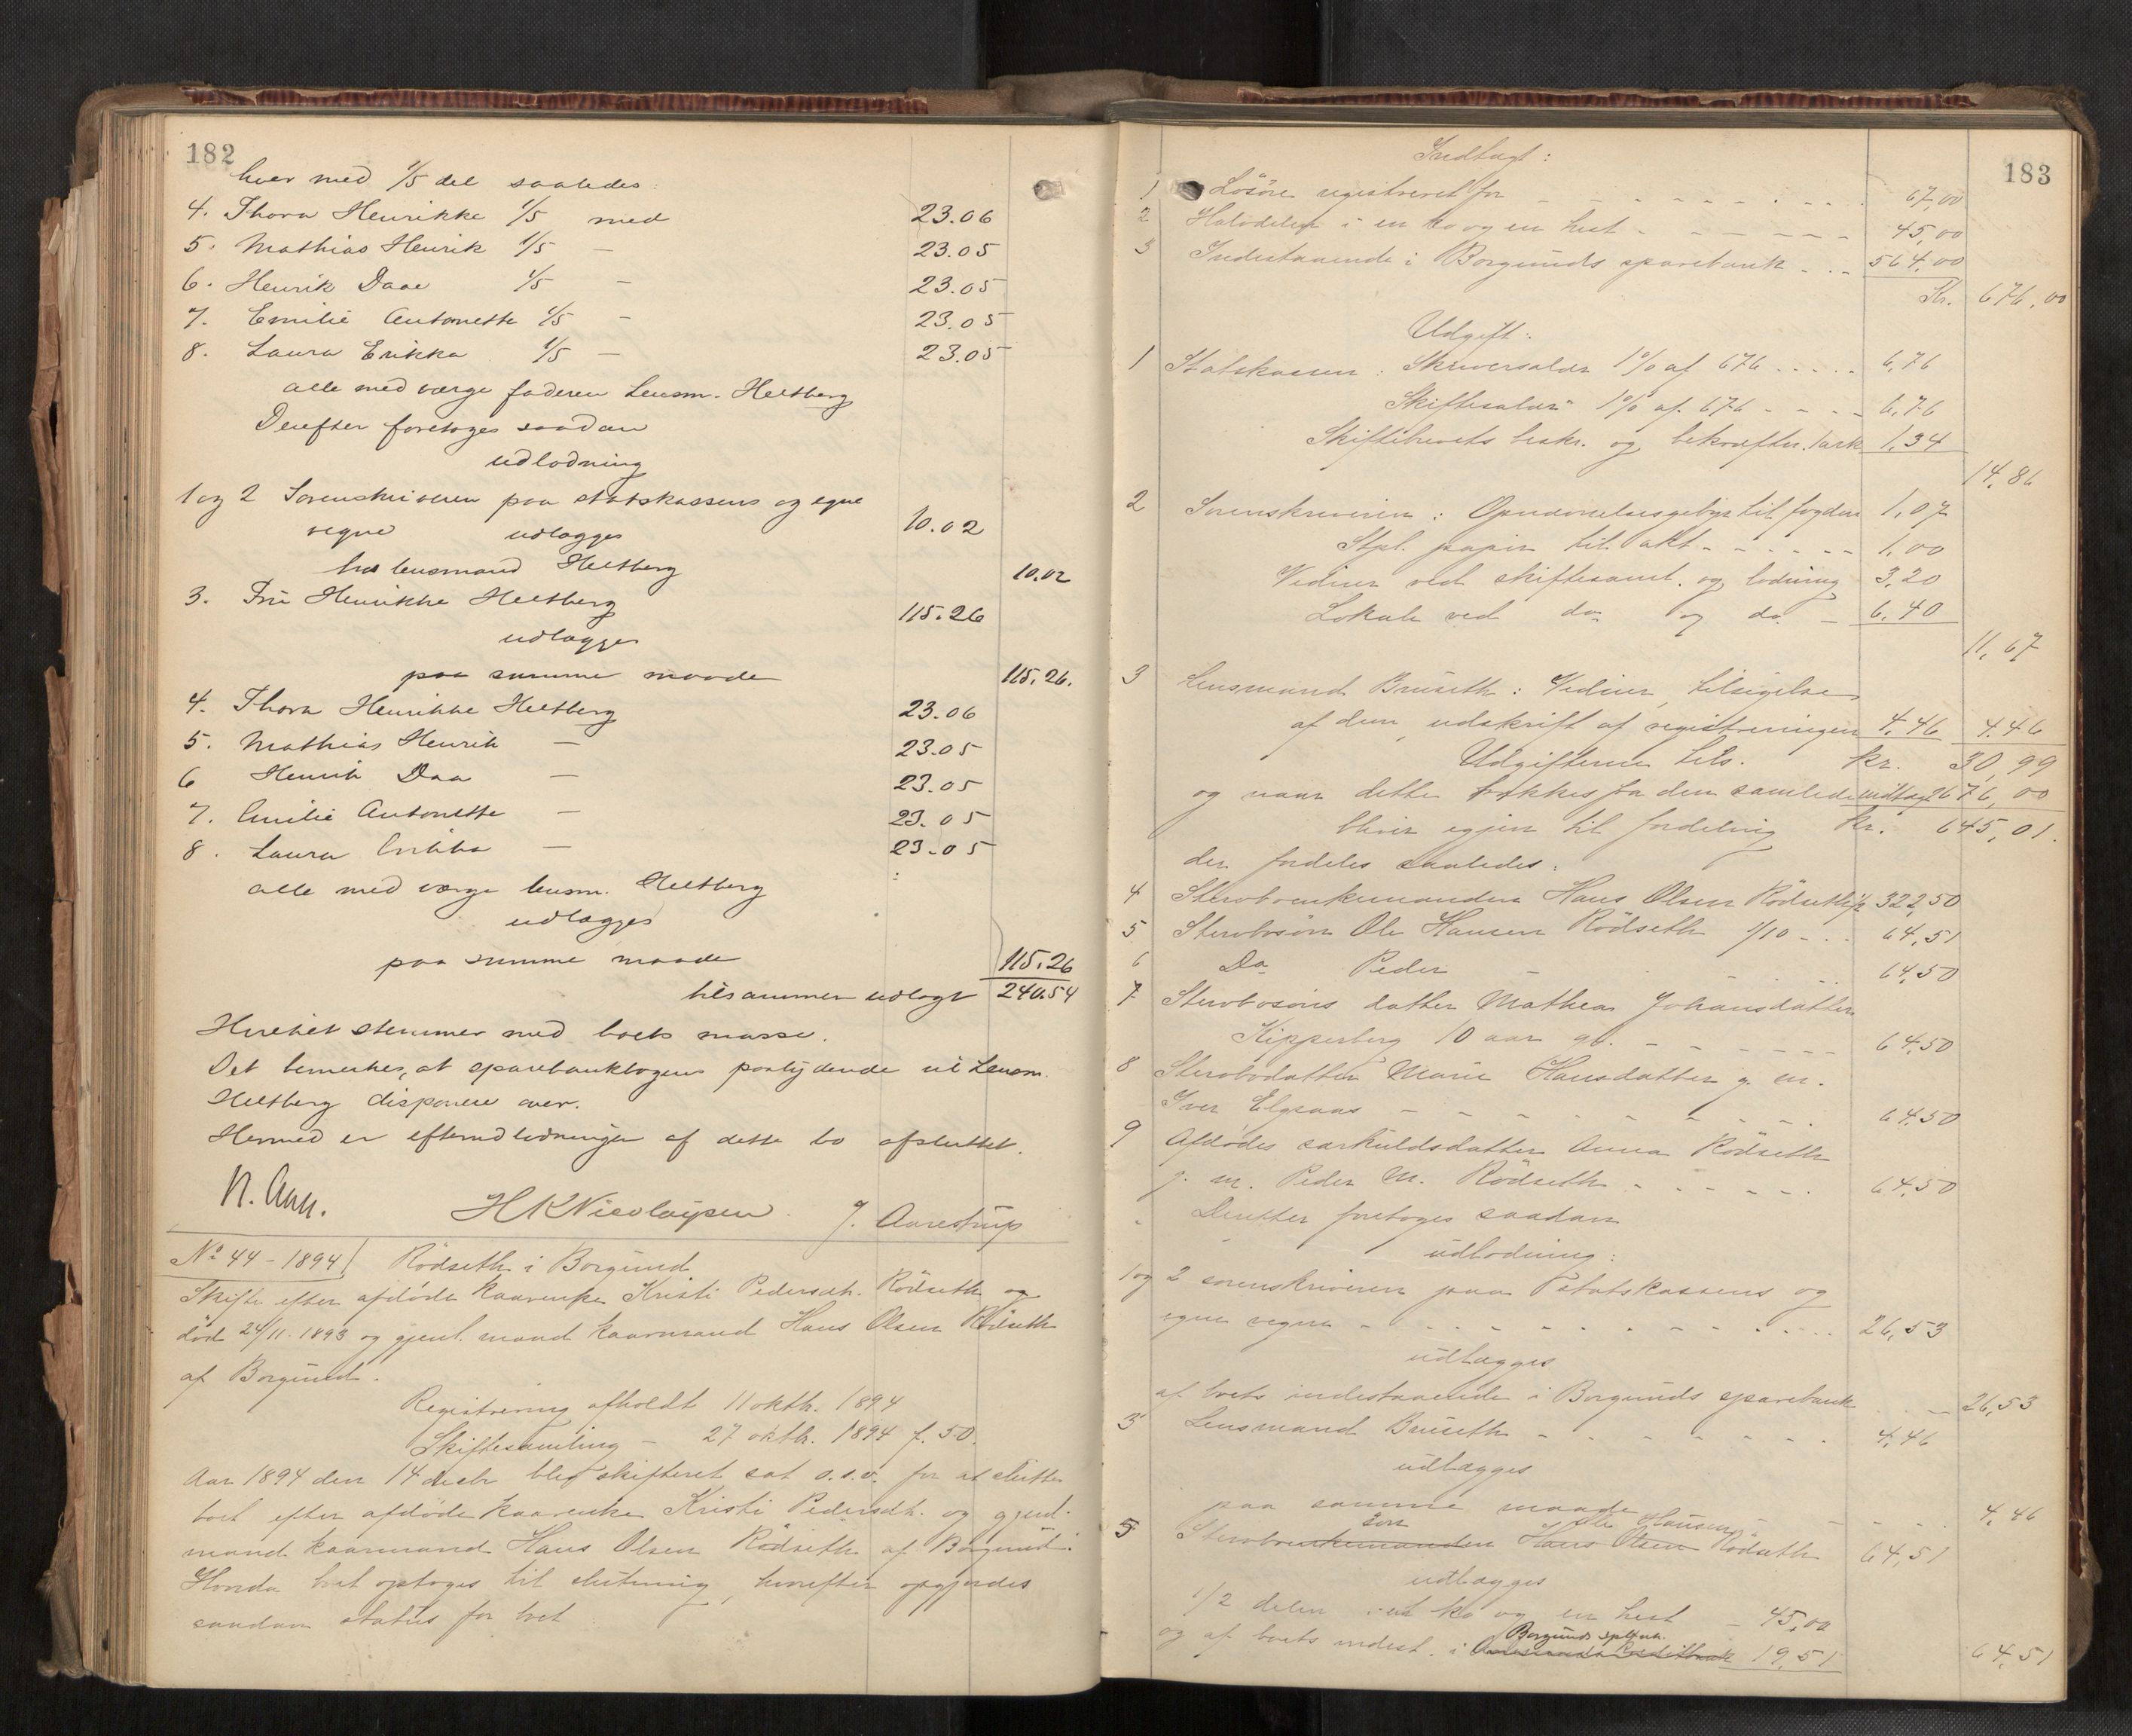 182
hver med 1/5 del saaledes:
4. Thora Henrikke 1/5 med 23.06
5. Mathias Henrik 1/5 — 23.05
6. Henrik Daae 1/5 — 23.05
7. Emilie Antonette 1/5 — 23.05
8. Laura Erikka 1/5 — 23.05
alle med værge faderen Lensm. Heltberg
Derefter foretoges saadan
udlodning
1 og 2 Sorenskriveren paa statskassens og egne
vegne 10.02
udlægges
hos lensmand Heltberg 10.02
3. Fru Henrikke Heltberg 115.26
udlægges
paa samme maade 115.26.
4. Thora Henrikke Heltberg 23.06
5. Mathias Henrik — 23.05
6 Henrik Daa — 23.05
7. Emilie Antonette — 23.05
8. Laura Erikka — 23.05
alle med værge lensm. Heltberg
udlægges
paa samme maade 115.26
tilsammen udlagt 240.54
Hvilket stemmer med boets masse.
Det bemerkes, at sparebankbogens paalydende vil Lensm.
Heltberg disponere over.
Hermed er efterudlodningen af dette bo afsluttet.
H K Nicolaysen. J. Aarestrup
No 44 - 1894 Rödseth i Borgund
Skifte efter afdöde kaarenke Kristi Pedersdt. Rödseth og
död 24/11. 1893 og gjenl. mand kaarmand Hans Olsen Rödseth
af Borgund.
Registrering afholdt 11 oktb. 1894
Skiftesamling — 27 oktb. 1894 f. 50.
Aar 1894 den 14 decbr blev skifteret sat o.s.v. for at slutte
boet efter afdöde kaarenke Kristi Pedersdt. og gjenl.
mand kaarmand Hans Olsen Rödseth af Borgund.
Hvorda boet optoges til slutning, hvorefter opgjordes
saadan status for boet
183
Indtægt:
1 Lösöre registreret for 67,00
2 Halvdelen i en ko og en hest 45,00
3 Indestaaende i Borgunds sparebank 564,00
Kr. 676,00
Udgift:
1 Statskassen: Skriversalær 1% af 676 6,76
Skiftesalær 1% af 676 6,76
Skiftebrevets beskr. og bekræftn. 1 ark 1,34
14,86
2 Sorenskriveren: Opnævnelsesgebyr til fogden 1,07
Stpl. papir til akt 1,00
Vidner ved skiftesaml. og lodning 3,20
Lokale ved do og do 6,40
11,67
3 Lensmand Bruseth: Vidner, tilsigelse
af dem, udskrift af registreringen 4,46 4,46
Udgifterne tils. kr. 30,99
og naar dette trækkes fra den samlede indtægt 676,00
bliver igjen til fordeling kr. 645,01.
der fordeles saaledes:
4 Stervboenkemanden Hans Olsen Rödseth 1/2 322,50
5 Stervbosön Ole Hansen Rödseth 1/10 64,51
6 Do Peder — 64,50
7 Stervbosöns datter Mathea Johansdatter
Kipperberg 10 aar gl. 64,50
8 Stervbodatter Marie Hansdatter g. m.
Iver Elgsaas 64,50
9 Afdödes særkuldsdatter Anna Rödseth
g. m. Peder M. Rödseth 64,50
Derefter foretoges saadan
udlodning:
1 og 2 sorenskriveren paa Statskassens og
egne vegne 26,53
udlægges
af boets indestaaende i Borgunds sparebank 26,53
3 Lensmand Bruseth 4,46
udlægges
paa samme maade 4,46
5 Stervboenkemanden sön Hans Olsen Ole Hansen Rödseth 64,51
udlægges
1/2 delen i en ko og en hest — 45,00
og af boets indest. i Borgunds spbank 19,51 64,51